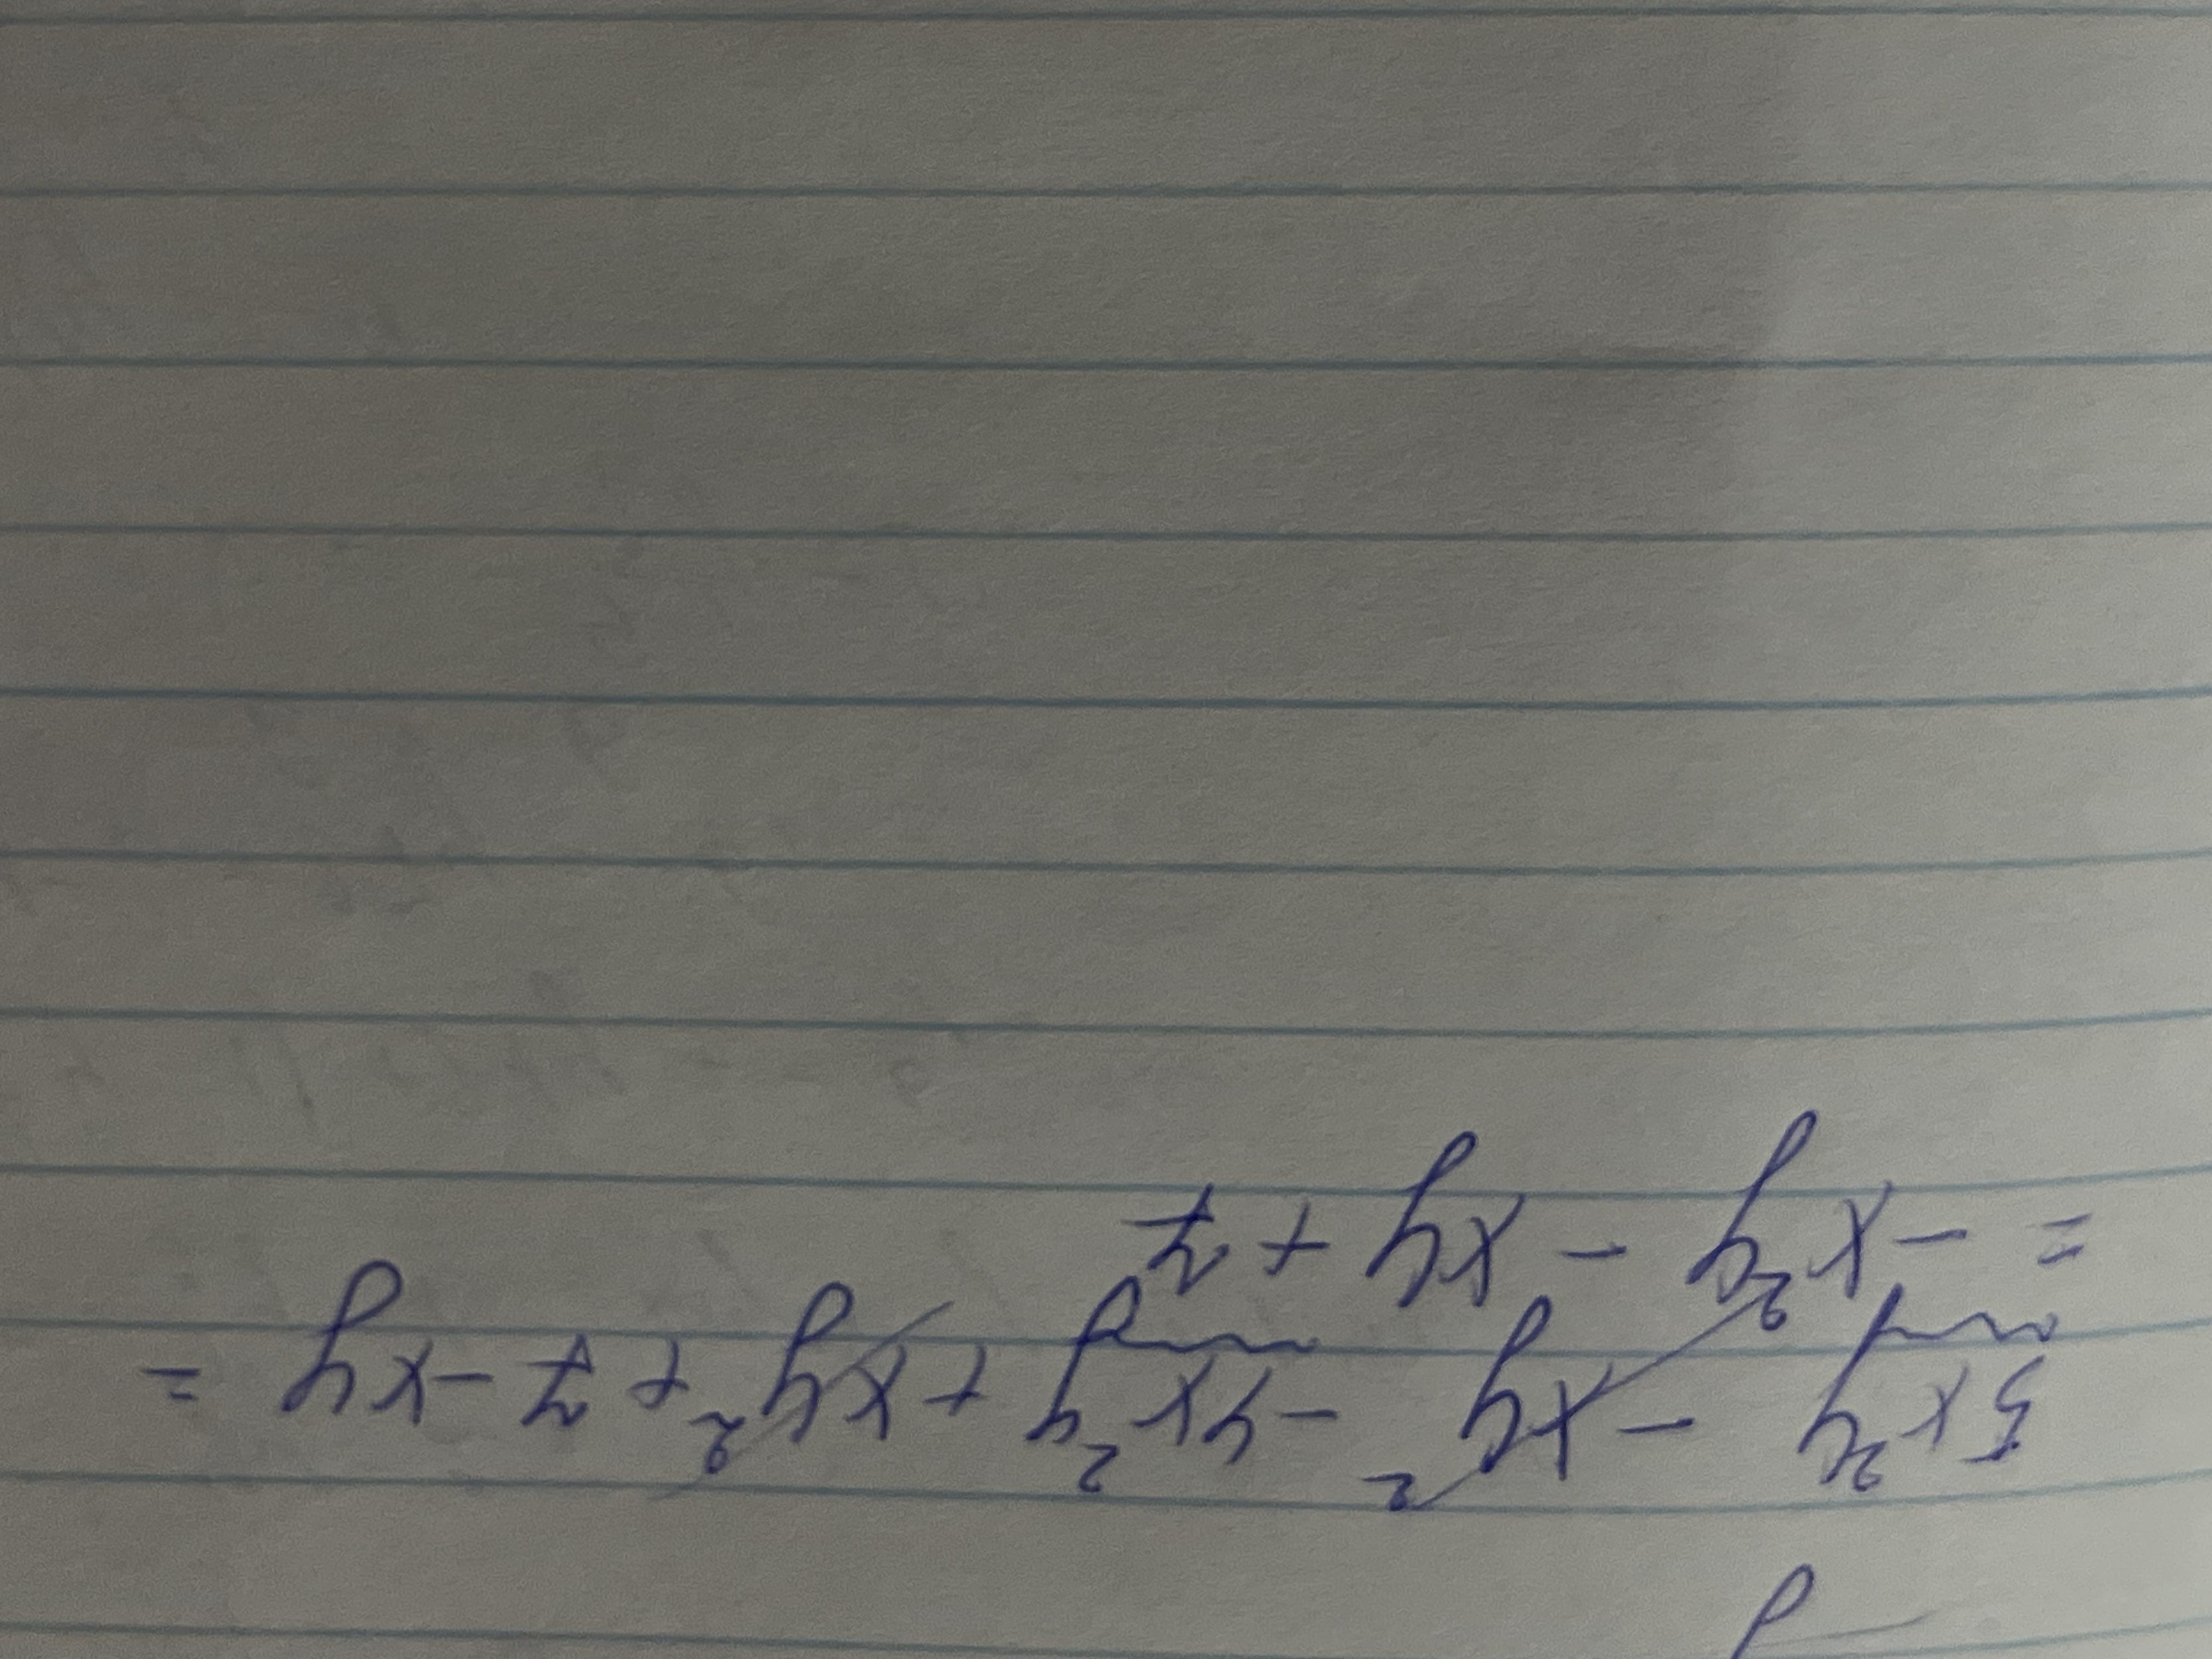 5x²y - xy² - 4x²y + xy² + 7 - xy =
= - x²y - xy + 7